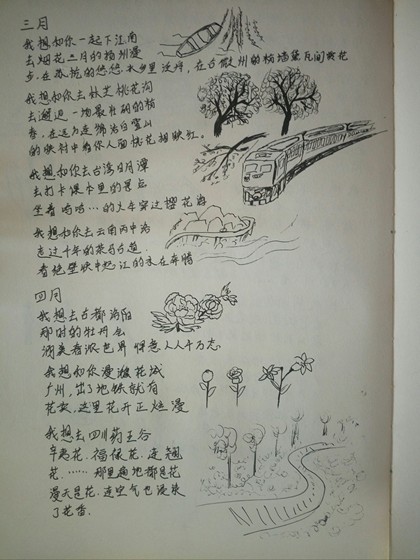 三月
我想和你一起下江南
去烟花三月的扬州漫
步,在水杭的悠悠水乡里泛舟,在古徽州的粉墙黛瓦间赏花
我想和你去林芝桃花沟
去邂逅一场最美的初
春,在远方连绵的白雪山
的映衬中与你人面桃花相映红。
我想和你去台湾日月潭
去打卡课本里的景点
坐着呜呜…的火车穿过樱花海
我想和你去云南丙中洛
走过千年的茶马古道
看绝壁峡中怒江的水在奔腾
四月
我想去古都洛阳
那时的牡丹会
浓香 世界 惬意人人千万态
我想和你漫游花城
广州,出了地铁就有
花款,这里花开正烂漫
我想去四川药王谷
辛夷花.福傲花.连翘
花.……那里遍地都是花
漫天是花.连空气也浸染
了花香.